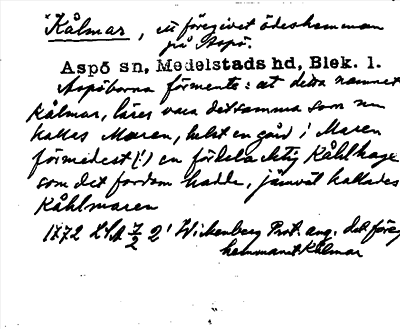 "Kålmar, ett föregivet ödeshemman
på Aspö.
Aspö sn, Medelstads hd, Blek. l.
Aspöborna förmente: at detta namnet
Kålmar, läres vara detsamma som nu
kallas Maren, helst en gård i Maren
förmedelst (!) en förleta Kåhlhage
som det fordom hadde, jämväl kallades
Kåhlmaren
1772 LSA 7/2 2' Wickenberg Prot. ang. det föreg
hemmanet Kålmar